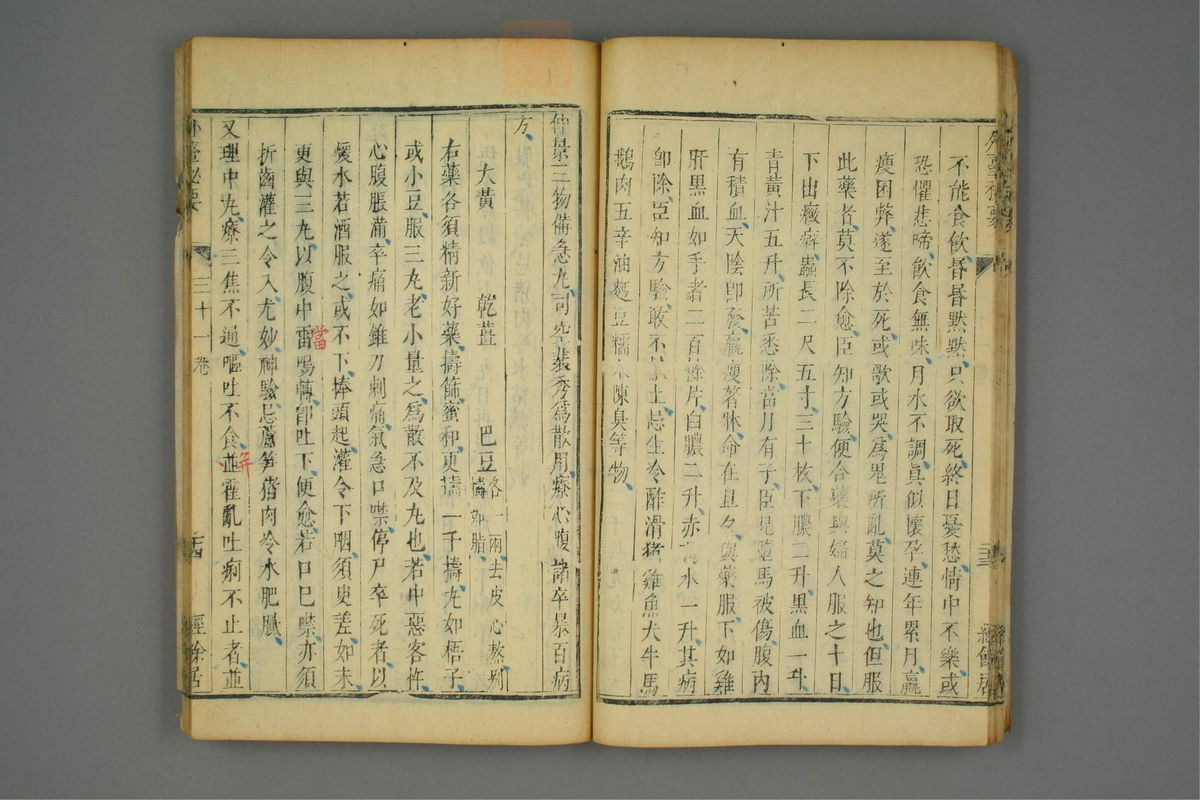 外臺秘要
二十三
經餘居
不能食飲昏昏默默只欲取死終日憂愁情中不樂或
恐懼悲啼飲食無味月水不調眞似懷孕連年累月羸
瘦困弊遂至於死或歌或哭爲鬼所亂莫之知也但服
此藥者莫不除愈臣知方驗便合藥與婦人服之十日
下出癥癖蟲長二尺五寸三十枚下膿二升黑血一斗
青黃汁五升所苦悉除當月有子臣兄墮馬被傷腹內
有積血天陰即發羸瘦著牀命在旦夕與藥服下如雞
肝黑血如手者二百餘片白膿二升赤水一升其病
即除臣知方驗敢不上忌生冷酢滑猪雞魚犬牛馬
鵝肉五辛油麪豆糯米陳臭等物
仲景三物備急丸司空裴秀爲散用療心腹諸卒暴百病
方
大黃 乾薑 巴豆各一兩去皮心熬別擣如脂
右藥各須精新好藥擣篩蜜和更擣一千擣丸如梧子
或小豆服三丸老小量之爲散不及丸也若中惡客忤
心腹脹滿卒痛如錐刀刺痛氣急口噤停尸卒死者以
煖水若酒服之或不下捧頭起灌令下咽須臾差如未
更與三丸以腹中雷鳴轉即吐下便愈若口已噤亦須
當
折齒灌之令入尤妙神驗忌蘆笋猪肉冷水肥膩
又理中丸療三焦不通嘔吐不食並霍亂吐痢不止者並
并
外臺秘要
三十一卷
二十四
經餘居